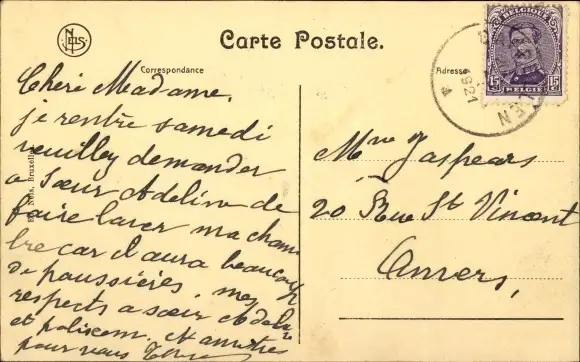 NELS
Carte Postale.
Correspondance
Adresse
BELGIQUE
15 15
BELGIE
1921
4
Nels, Bruxelles
Chère Madame,
je rentre samedi
veuilley demander
a Sœur Adeline de
faire laver ma cham
bre car il aura beaucoup
de poussières, mes
respects a sœur Adeline
et
pour vous
Mme Jaspears
20 Rue St Vincent
Anvers,